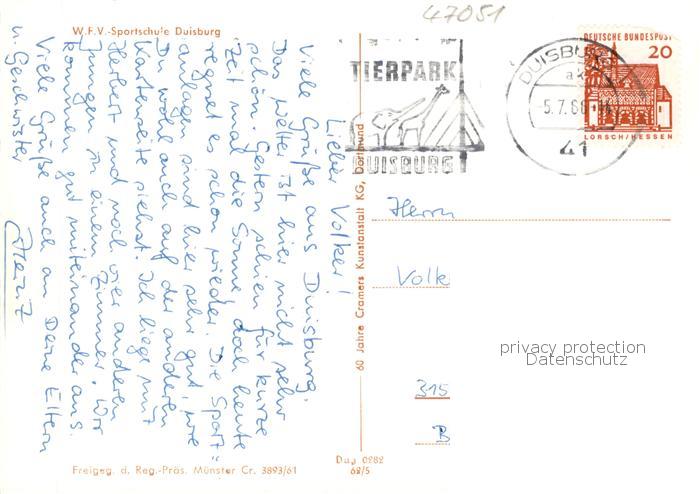 47051
W.F.V.-Sportschule Duisburg
Lieber Volker!
Viele Grüße aus Duisburg.
Das Wetter ist hier nicht sehr
schön. Gestern schien für kurze
Zeit mal die Sonne, doch heute
regnet es schon wieder. Die Sport=
anlagen sind hier sehr gut, wie
Du wohl auch auf der anderen
Kartenseite siehst. Ich liege mit
Herbert und noch vier anderen
Jungen in einem Zimmer. Wir
kommen gut miteinander aus.
Viele Grüße auch an Deine Eltern
u. Geschwister
Freigeg. d. Reg.-Präs. Münster Cr. 3893/61
Dug 0282
62/5
60 Jahre Cramers Kunstanstalt KG, Dortmund
TIERPARK
DUISBURG
DUISBURG
5.7.66
41
DEUTSCHE BUNDESPOST
20
LORSCH/HESSEN
Herrn
Volk
privacy protection
Datenschutz
315
B